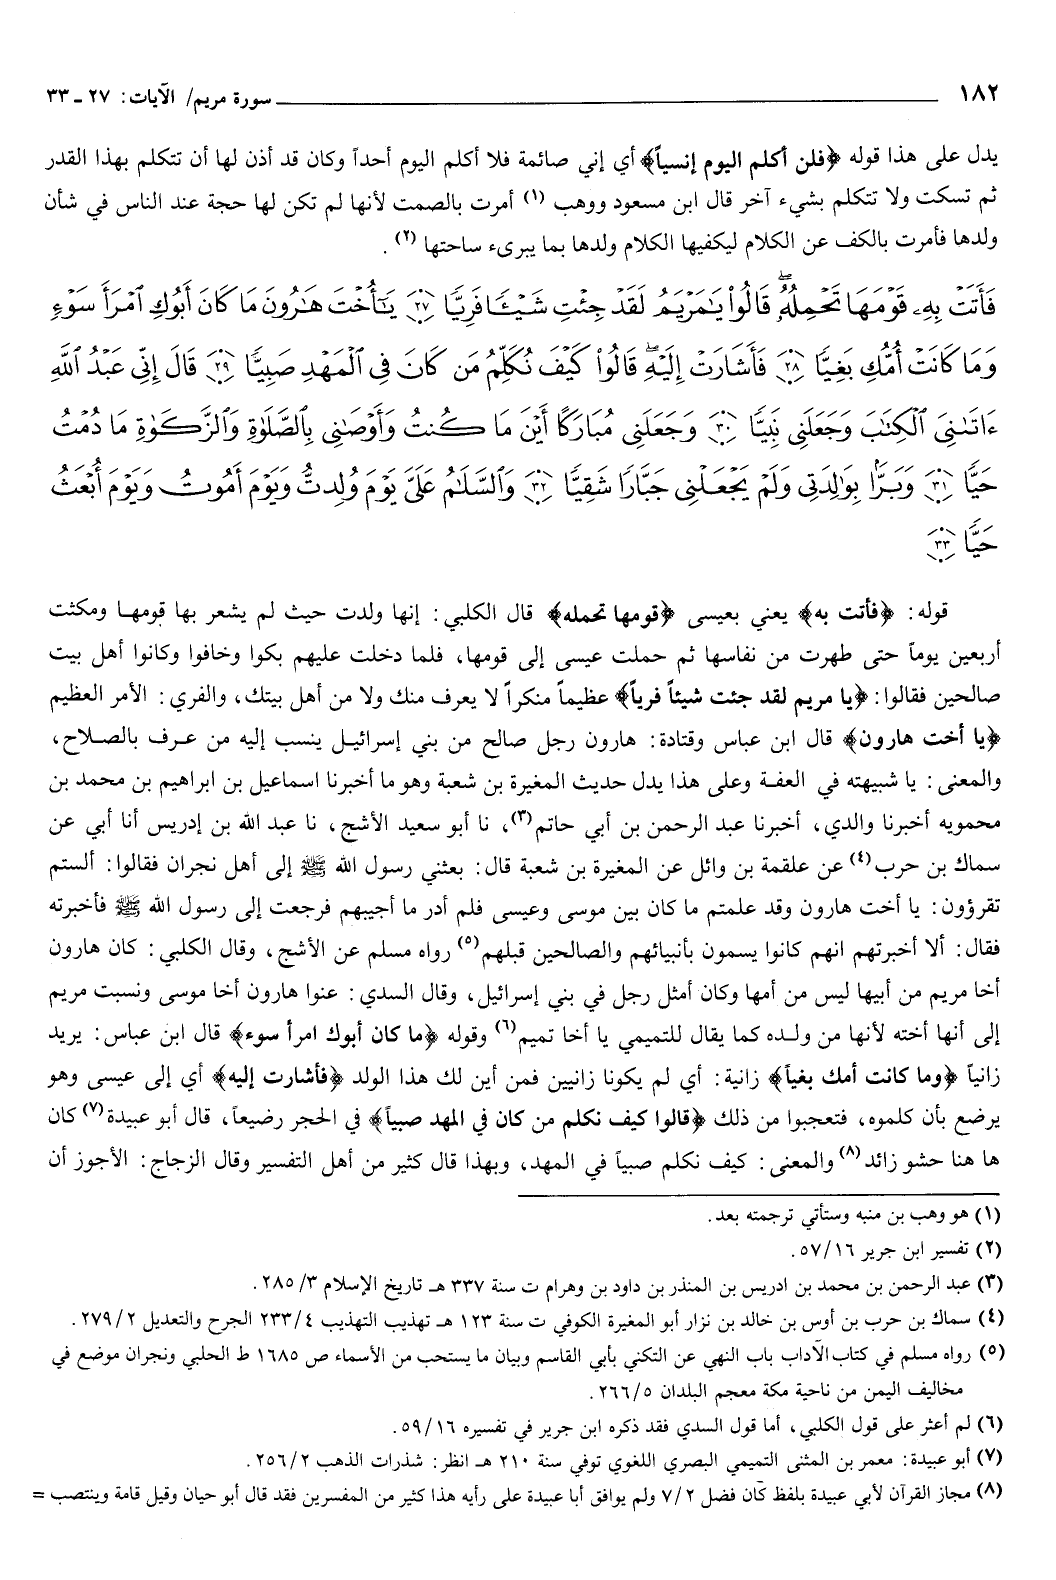 ١٨٢ سورة مريم/ الآيات: ٢٧ ـ ٣٣
يدل على هذا قوله ﴿فلن أكلم اليوم إنسياً﴾ أي إني صائمة فلا أكلم اليوم أحداً وكان قد أذن لها أن تتكلم بهذا القدر
ثم تسكت ولا تتكلم بشيء آخر قال ابن مسعود ووهب (١) أمرت بالصمت لأنها لم تكن لها حجة عند الناس في شأن
ولدها فأمرت بالكف عن الكلام ليكفيها الكلام ولدها بما يبرىء ساحتها (٢) .
فَأَتَتْ بِهِۦ قَوْمَهَا تَحْمِلُهُۥۖ قَالُوا۟ يَٰمَرْيَمُ لَقَدْ جِئْتِ شَيْـًٔا فَرِيًّا ٢٧ يَٰٓأُخْتَ هَٰرُونَ مَا كَانَ أَبُوكِ ٱمْرَأَ سَوْءٍ
وَمَا كَانَتْ أُمُّكِ بَغِيًّا ٢٨ فَأَشَارَتْ إِلَيْهِۖ قَالُوا۟ كَيْفَ نُكَلِّمُ مَن كَانَ فِى ٱلْمَهْدِ صَبِيًّا ٢٩ قَالَ إِنِّى عَبْدُ ٱللَّهِ
ءَاتَىٰنِىَ ٱلْكِتَٰبَ وَجَعَلَنِى نَبِيًّا ٣٠ وَجَعَلَنِى مُبَارَكًا أَيْنَ مَا كُنتُ وَأَوْصَٰنِى بِٱلصَّلَوٰةِ وَٱلزَّكَوٰةِ مَا دُمْتُ
حَيًّا ٣١ وَبَرًّۢا بِوَٰلِدَتِى وَلَمْ يَجْعَلْنِى جَبَّارًا شَقِيًّا ٣٢ وَٱلسَّلَٰمُ عَلَىَّ يَوْمَ وُلِدتُّ وَيَوْمَ أَمُوتُ وَيَوْمَ أُبْعَثُ
حَيًّا ٣٣
قوله: ﴿فأتت به﴾ يعني بعيسى ﴿قومها تحمله﴾ قال الكلبي: إنها ولدت حيث لم يشعر بها قومهـا ومكثت
أربعين يوماً حتى طهرت من نفاسها ثم حملت عيسى إلى قومها، فلما دخلت عليهم بكوا وخافوا وكانوا أهل بيت
صالحين فقالوا: ﴿يا مريم لقد جئت شيئاً فرياً﴾ عظيماً منكراً لا يعرف منك ولا من أهل بيتك، والفري: الأمر العظيم
﴿يا أخت هارون﴾ قال ابن عباس وقتادة: هارون رجل صالح من بني إسرائيـل ينسب إليه من عـرف بالصـلاح،
والمعنى: يا شبيهته في العفـة وعلى هذا يدل حديث المغيرة بن شعبة وهو ما أخبرنا اسماعيل بن ابراهيم بن محمد بن
محمويه أخبرنا والدي، أخبرنا عبد الرحمن بن أبي حاتم(٣)، نا أبو سعيد الأشج، نا عبد الله بن إدريس أنا أبي عن
سماك بن حرب(٤) عن علقمة بن وائل عن المغيرة بن شعبة قال: بعثني رسول الله ﷺ إلى أهل نجران فقالوا: ألستم
تقرؤون: يا أخت هارون وقد علمتم ما كان بين موسى وعيسى فلم أدر ما أجيبهم فرجعت إلى رسول الله ﷺ فأخبرته
فقال: ألا أخبرتهم انهم كانوا يسمون بأنبيائهم والصالحين قبلهم(٥) رواه مسلم عن الأشج، وقال الكلبي: كان هارون
أخا مريم من أبيها ليس من أمها وكان أمثل رجل في بني إسرائيل، وقال السدي: عنوا هارون أخا موسى ونسبت مريم
إلى أنها أخته لأنها من ولـده كما يقال للتميمي يا أخا تميم(٦) وقوله ﴿ما كان أبوك امرأ سوء﴾ قال ابن عباس: يريد
زانياً ﴿وما كانت أمك بغياً﴾ زانية: أي لم يكونا زانيين فمن أين لك هذا الولد ﴿فأشارت إليه﴾ أي إلى عيسى وهو
يرضع بأن كلموه، فتعجبوا من ذلك ﴿قالوا كيف نكلم من كان في المهد صبياً﴾ في الحجر رضيعاً، قال أبو عبيدة(٧) كان
ها هنا حشو زائد(٨) والمعنى: كيف نكلم صبياً في المهد، وبهذا قال كثير من أهل التفسير وقال الزجاج: الأجوز أن
(١) هو وهب بن منبه وستأتي ترجمته بعد.
(٢) تفسير ابن جرير ١٦/٥٧.
(٣) عبد الرحمن بن محمد بن ادريس بن المنذر بن داود بن وهرام ت سنة ٣٣٧ هـ تاريخ الإسلام ٣/ ٢٨٥.
(٤) سماك بن حرب بن أوس بن خالد بن نزار أبو المغيرة الكوفي ت سنة ١٢٣ هـ تهذيب التهذيب ٤/ ٢٣٣ الجرح والتعديل ٢/ ٢٧٩.
(٥) رواه مسلم في كتاب الآداب باب النهي عن التكني بأبي القاسم وبيان ما يستحب من الأسماء ص ١٦٨٥ ط الحلبي ونجران موضع في
مخاليف اليمن من ناحية مكة معجم البلدان ٥/ ٢٦٦.
(٦) لم أعثر على قول الكلبي، أما قول السدي فقد ذكره ابن جرير في تفسيره ١٦/ ٥٩.
(٧) أبو عبيدة: معمر بن المثنى التميمي البصري اللغوي توفي سنة ٢١٠ هـ انظر: شذرات الذهب ٢/ ٢٥٦.
(٨) مجاز القرآن لأبي عبيدة بلفظ كان فضل ٢/ ٧ ولم يوافق أبا عبيدة على رأيه هذا كثير من المفسرين فقد قال أبو حيان وقيل قامة وينتصب =